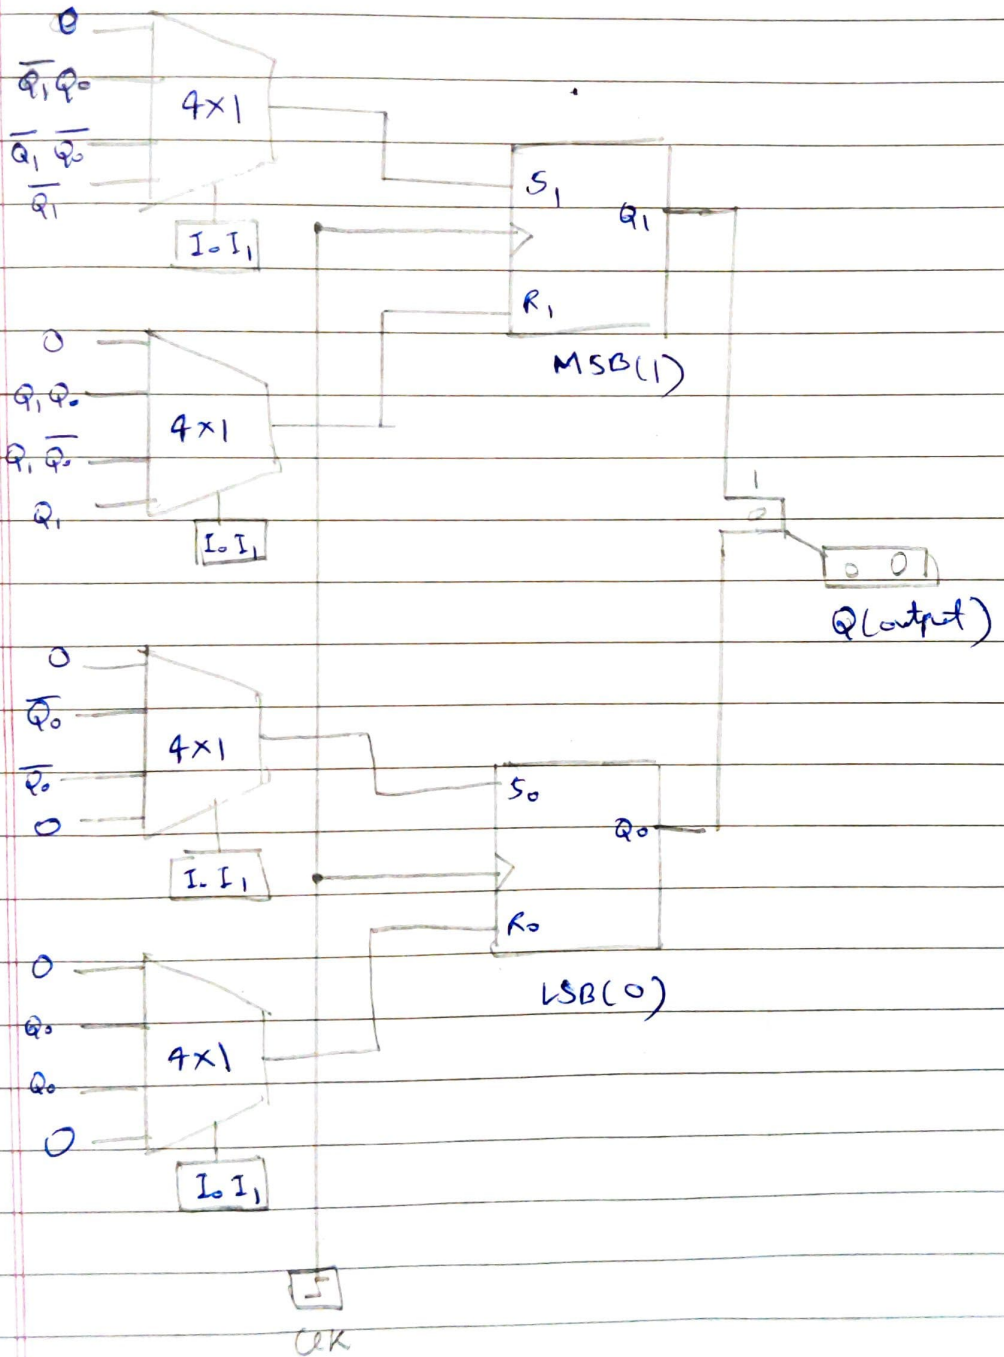 0
Q̅₁Q₀
Q̅₁ Q̅₀
Q̅₁
4×1
I₀I₁
S₁
Q₁
R₁
MSB(1)
0
Q₁Q₀
Q₁Q̅₀
Q₁
4×1
I₀I₁
1
0
0 0
Q(output)
0
Q̅₀
Q̅₀
0
4×1
I₀I₁
S₀
Q₀
R₀
LSB(0)
0
Q₀
Q₀
0
4×1
I₀I₁
CLK